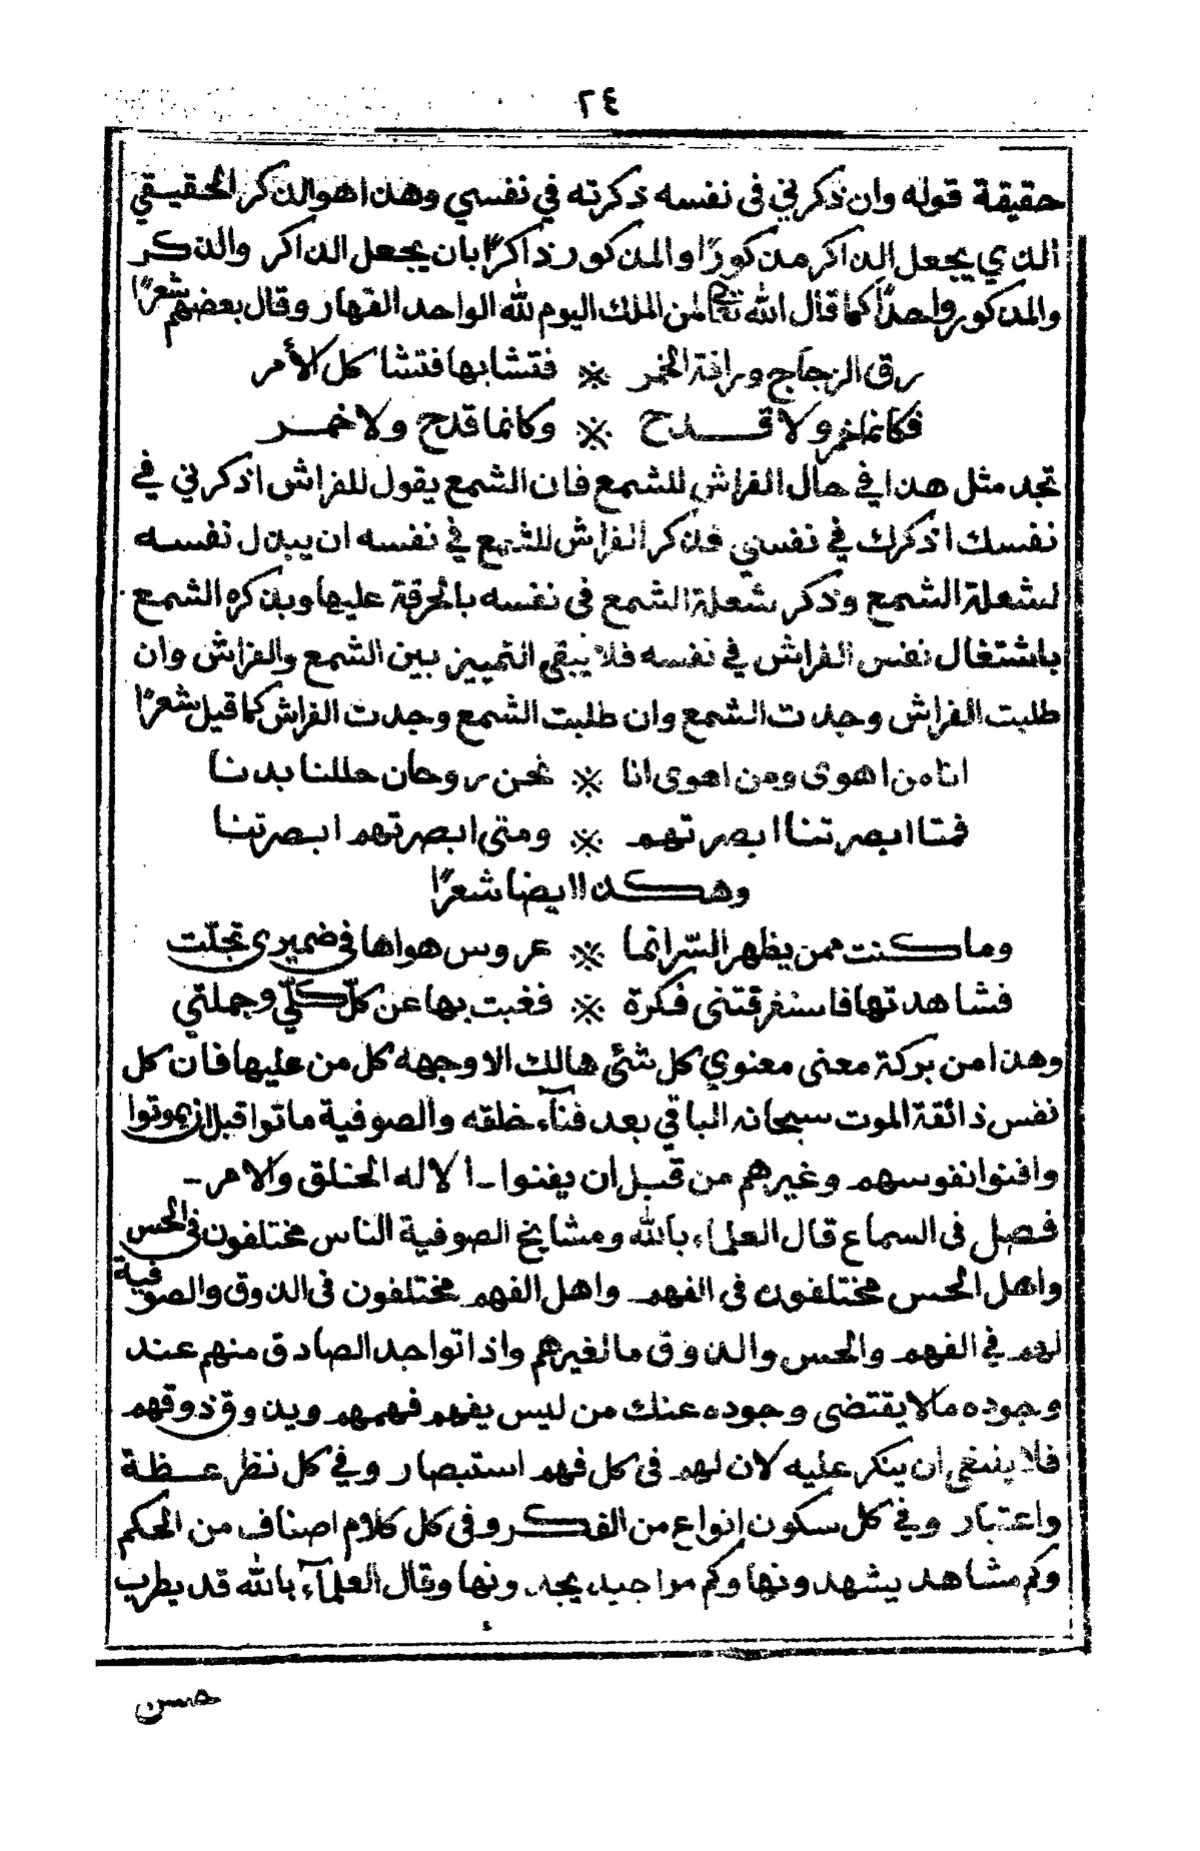 ٢٤
حقيقة قوله وان ذكرني في نفسه ذكرته في نفسي وهذا هو الذكر الحقيقي
الذي يجعل الذاكر مذكورًا والمذكور ذاكرًا بان يجعل الذاكر والذكر
والمذكور واحدًا كما قال الله تعالى لمن الملك اليوم لله الواحد القهار وقال بعضهم شعرًا
رق الزجاج وراقة الخمر ※ فتشابها فتشاكل الأمر
فكانما خمر ولا قدح ※ وكانما قدح ولا خمر
تجد مثل هذا في حال الفراش للشمع فان الشمع يقول للفراش اذكرني في
نفسك اذكرك في نفسي فذكر الفراش للشمع في نفسه ان يبذل نفسه
لشعلة الشمع وذكر شعلة الشمع في نفسه بالحرقة عليها ويذكره الشمع
باشتغال نفس الفراش في نفسه فلا يبقى التمييز بين الشمع والفراش وان
طلبت الفراش وجدت الشمع وان طلبت الشمع وجدت الفراش كما قيل شعرًا
انا من اهوى ومن اهوى انا ※ نحن روحان حللنا بدنا
فمتا ابصرتنا ابصرتهم ※ ومتى ابصرتهم ابصرتنا
وهكذا ايضا شعرًا
وما كنت ممن يظهر السّر انما ※ عروس هواها في ضميري تجلّت
فشاهدتها فاستغرقتنى فكرة ※ فغبت بها عن كلّ كلّي وجملتي
وهذا من بركة معنى معنوي كل شئي هالك الا وجهه كل من عليها فان كل
نفس ذائقة الموت سبحانه الباقي بعد فنآء خلقه والصوفية ماتوا قبل ان يموتوا
وافنوا نفوسهم وغيرهم من قبل ان يفنوا ـ الا له الخلق والامر ـ
فصل في السماع قال العلماء بالله ومشايخ الصوفية الناس مختلفون في الحس
واهل الحس مختلفون في الفهم واهل الفهم مختلفون في الذوق والصوفية
لهم في الفهم والحس والذوق ما لغيرهم واذا تواجد الصادق منهم عند
وجوده ما لا يقتضى وجوده عنك من ليس يفهم فهمهم ويذوق ذوقهم
فلا ينبغي ان ينكر عليه لان لهم في كل فهم استبصار وفي كل نظر عظة
واعتبار وفي كل سكون انواع من الفكر وفي كل كلام اصناف من الحكم
وكم مشاهد يشهدونها وكم مواجيد يجدونها وقال العلمآء بالله قد يطرب
حسن